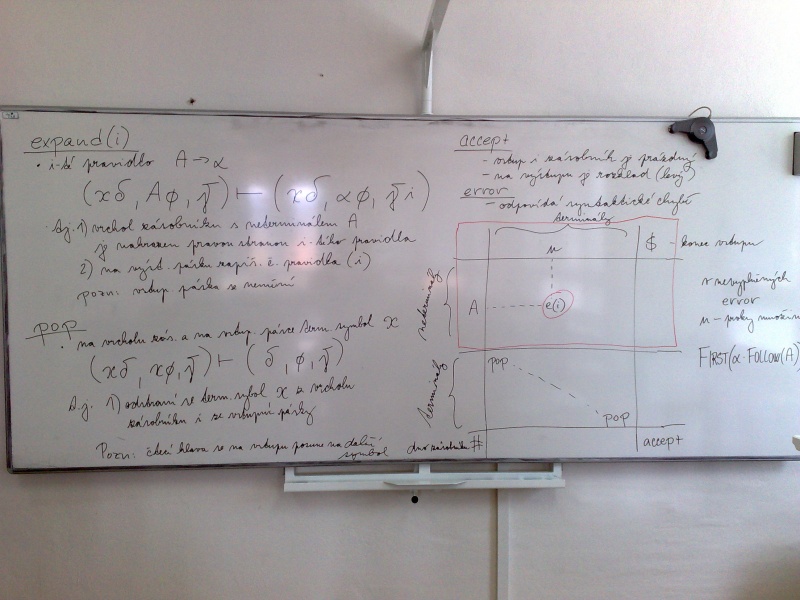 expand(i)
• i-té pravidlo A → α
(xδ, Aϕ, γ̃) ⊢ (xδ, αϕ, γ̃i)
tj. 1) vrchol zásobníku s neterminálem A
je nahrazen pravou stranou i-tého pravidla
2) na výst. pásku zapíš. č. pravidla (i)
pozn: vstup. páska se nemění
pop
• na vrcholu zás. a na vstup. pásce term. symbol x
(xδ, xϕ, γ̃) ⊢ (δ, ϕ, γ̃)
t.j. 1) odstraní se term. symbol x z vrcholu
zásobníku i ze vstupní pásky
Pozn: čtecí hlava se na vstupu posune na další
symbol
accept
- vstup i zásobník je prázdný
- na výstupu je rozklad (levý)
error
- odpovídá syntaktické chybě
terminály
u
$ - konec vstupu
neterminály
A
e(i)
v nevyplněných
error
u - prvky množin
FIRST(α·FOLLOW(A)
terminály
pop
pop
dno zásobníku #
accept